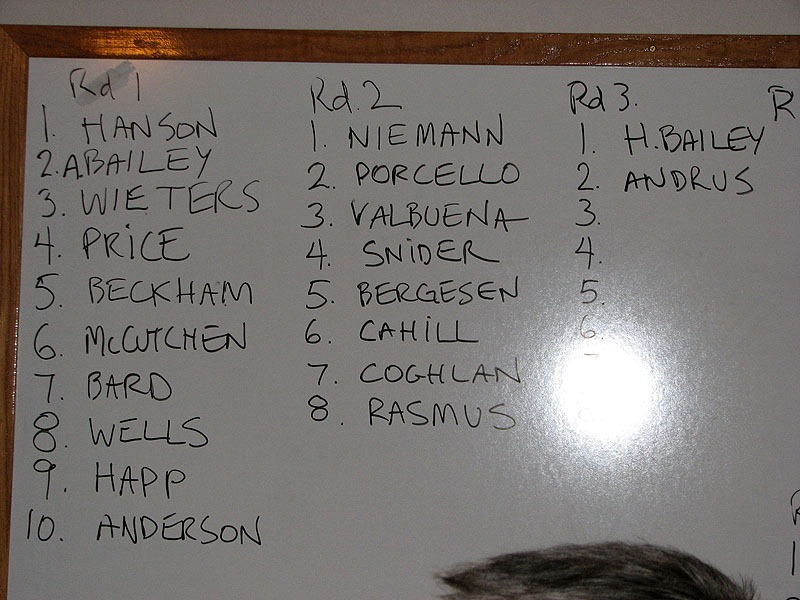 Rd 1
1. HANSON
2. A.BAILEY
3. WIETERS
4. PRICE
5. BECKHAM
6. McCUTCHEN
7. BARD
8. WELLS
9. HAPP
10. ANDERSON
Rd. 2
1. NIEMANN
2. PORCELLO
3. VALBUENA
4. SNIDER
5. BERGESEN
6. CAHILL
7. COGHLAN
8. RASMUS
Rd 3.
1. H.BAILEY
2. ANDRUS
3.
4.
5.
6.
R